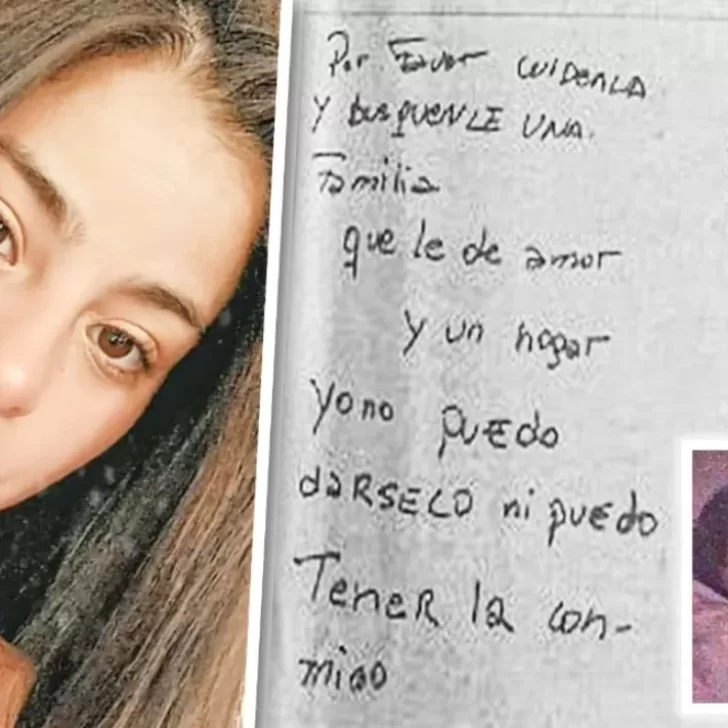 Por Favor cuiDenLA
Y busquenLE UNA.
Familia
que le de amor
Y un hogar
Yo no puEdo
daRSELO ni puEdo
TeneR la con-
migo